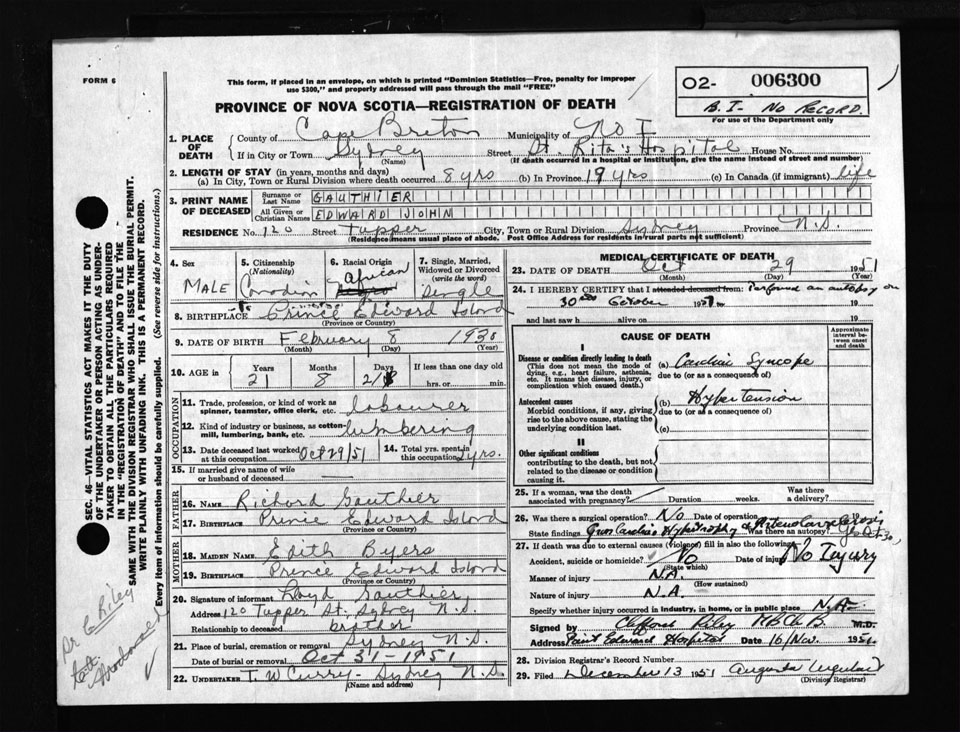 FORM 6
This form, if placed in an envelope, on which is printed "Dominion Statistics—Free, penalty for improper
use $300," and properly addressed will pass through the mail "FREE"
PROVINCE OF NOVA SCOTIA—REGISTRATION OF DEATH
02- 006300
B.I- No RECORD.
For use of the Department only
1. PLACE OF DEATH County of Cape Breton Municipality of No I
If in City or Town Sydney (Name) Street St. Rita's Hospital House No.
(If death occurred in a hospital or institution, give the name instead of street and number)
2. LENGTH OF STAY (in years, months and days)
(a) In City, Town or Rural Division where death occurred 8 yrs (b) In Province 19 yrs (c) In Canada (if immigrant) life
3. PRINT NAME OF DECEASED Surname or Last Name GAUTHIER
All Given or Christian Names EDWARD JOHN
RESIDENCE No. 120 Street Tupper City, Town or Rural Division Sydney Province N.S.
(Residence means usual place of abode. Post Office Address for residents in rural parts not sufficient)
4. Sex MALE
5. Citizenship (Nationality) Canadian
6. Racial Origin African
7. Single, Married, Widowed or Divorced (write the word) Single
8. BIRTHPLACE Prince Edward Island
(Province or Country)
9. DATE OF BIRTH February 8 1930
(Month) (Day) (Year)
10. AGE in Years 21 Months 8 Days 21 If less than one day old hrs. or min.
OCCUPATION
11. Trade, profession, or kind of work as spinner, teamster, office clerk, etc. labourer
12. Kind of industry or business, as cotton-mill, lumbering, bank, etc. lumbering
13. Date deceased last worked at this occupation Oct 29/51 14. Total yrs. spent in this occupation 2 yrs.
15. If married give name of wife or husband of deceased
FATHER
16. NAME Richard Gauthier
17. BIRTHPLACE Prince Edward Island
(Province or Country)
MOTHER
18. MAIDEN NAME Edith Byers
19. BIRTHPLACE Prince Edward Island
(Province or Country)
20. Signature of informant Lloyd Gauthier
Address 120 Tupper St. Sydney N.S.
Relationship to deceased brother
21. Place of burial, cremation or removal Sydney N.S.
Date of burial or removal Oct 31-1951
22. UNDERTAKER T. W Curry- Sydney N.S.
(Name and address)
MEDICAL CERTIFICATE OF DEATH
23. DATE OF DEATH Oct 29 1951
(Month) (Day)
24. I HEREBY CERTIFY that I attended deceased from: Performed an autopsy on
30 October 1951. to 19
and last saw h alive on 19
CAUSE OF DEATH
Approximate interval between onset and death
I
Disease or condition directly leading to death
(This does not mean the mode of dying, e.g., heart failure, asthenia, etc. It means the disease, injury, or complication which caused death.)
(a) Cardiac Syncope
due to (or as a consequence of)
Antecedent causes
Morbid conditions, if any, giving rise to the above cause, stating the underlying condition last.
(b) Hypertension
due to (or as a consequence of)
(c)
II
Other significant conditions
contributing to the death, but not related to the disease or condition causing it.
25. If a woman, was the death associated with pregnancy? Duration weeks. Was there a delivery?
26. Was there a surgical operation? No Date of operation 19
State findings Gross Cardiac Hypertrophy & Was there an autopsy? Yes Oct 30,
27. If death was due to external causes (violence) fill in also the following:
Accident, suicide or homicide? No (State which) Date of injury No Injury
Manner of injury N.A. (How sustained)
Nature of injury N.A.
Specify whether injury occurred in industry, in home, or in public place N.A-
Signed by Clifford Riley M B Ch B. M.D.
Address Point Edward Hospital Date 16 Nov. 1951.
28. Division Registrar's Record Number
29. Filed December 13 1951 Augusta
(Division Registrar)
SEC. 46—VITAL STATISTICS ACT MAKES IT THE DUTY
OF THE UNDERTAKER OR PERSON ACTING AS UNDER-
TAKER TO OBTAIN ALL THE PARTICULARS REQUIRED
IN THE "REGISTRATION OF DEATH" AND TO FILE THE
SAME WITH THE DIVISION REGISTRAR WHO SHALL ISSUE THE BURIAL PERMIT.
WRITE PLAINLY WITH UNFADING INK. THIS IS A PERMANENT RECORD.
Every item of information should be carefully supplied. (See reverse side for instructions.)
Dr C Riley